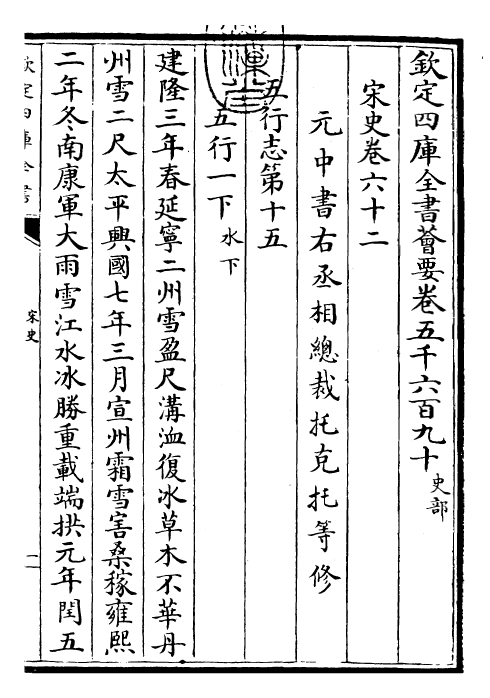 欽定四庫全書薈要卷五千六百九十 史部
宋史卷六十二
元中書右丞相總裁托克托等修
五行志第十五
五行一下 水下
建隆三年春延寧二州雪盈尺溝洫復冰草木不華丹
州雪二尺太平興國七年三月宣州霜雪害桑稼雍熙
二年冬南康軍大雨雪江水冰勝重載端拱元年閏五
欽定四庫全書
宋史
一